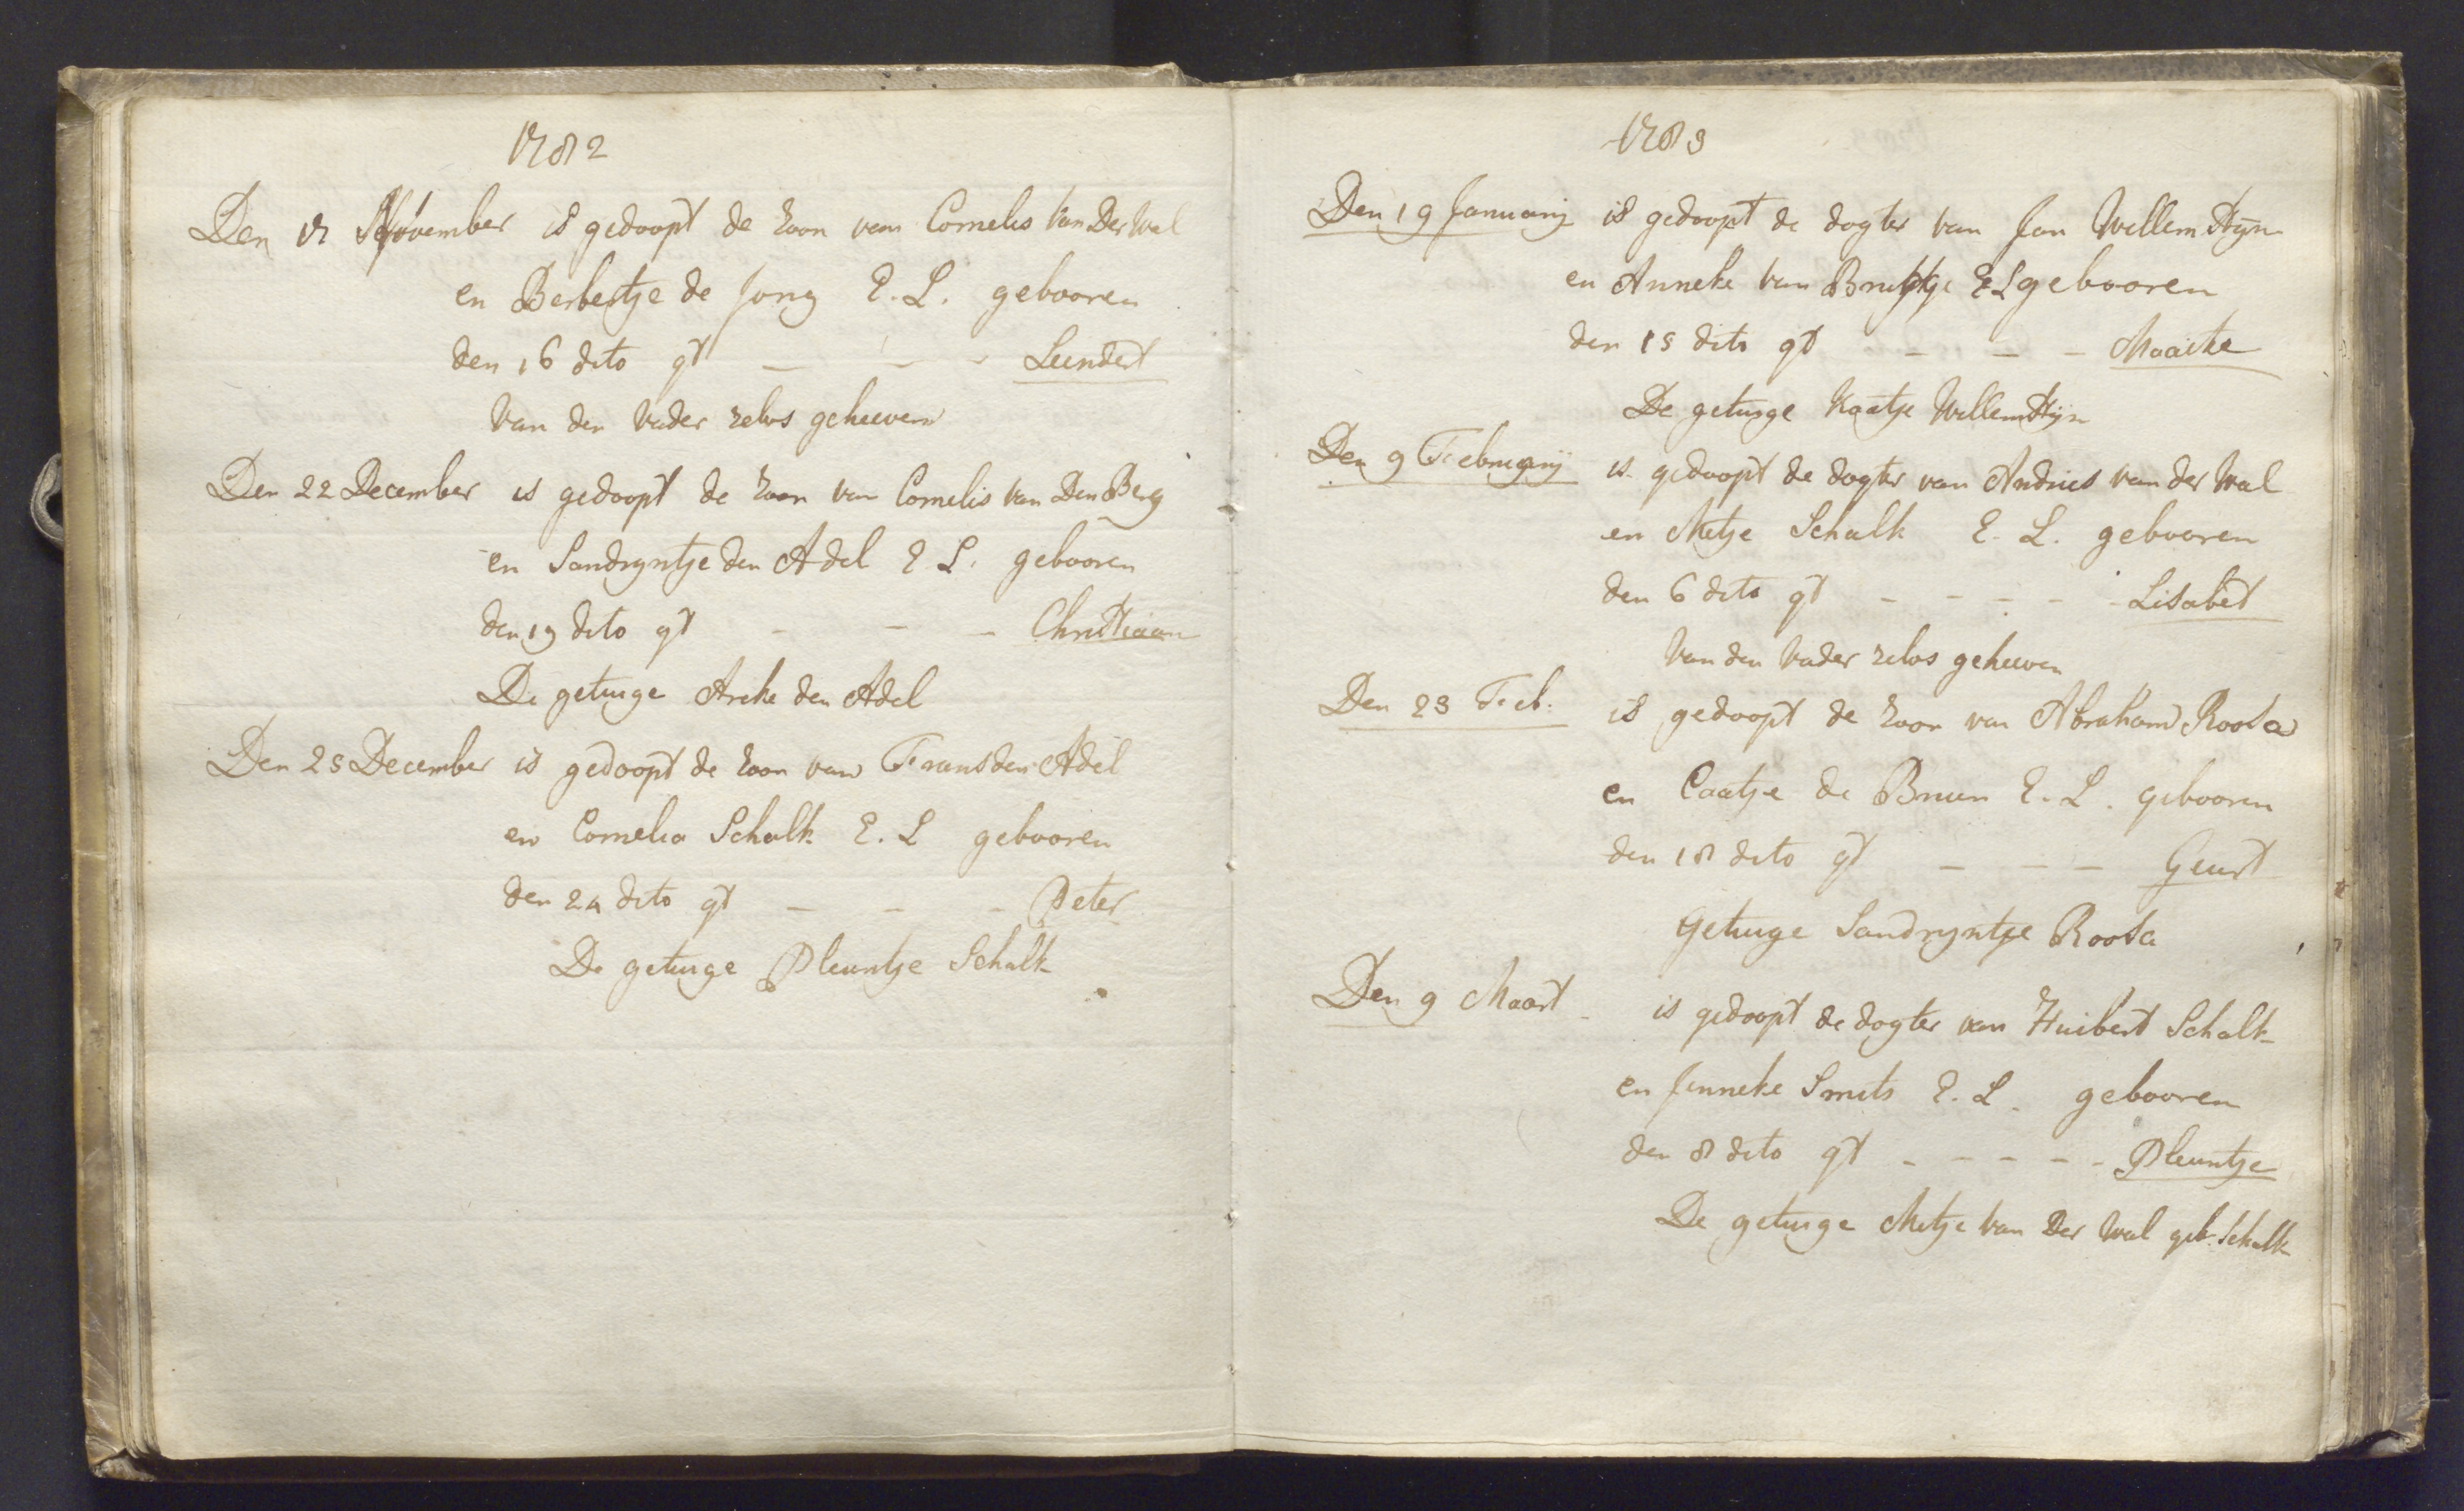 1782
Den 17 November is gedoopt de zoon van Cornelis Van Der Wal
en Berbertje de Jong E. L. gebooren
den 16 dito gt - - - Leendert
Van den Vader zelvs geheeven
Den 22 December is gedoopt de zoon van Cornelis van Den Berg
en Sandryntje den Adel E L. gebooren
den 19 dito gt - - - Christiaan
De getuige Areke den Adel
Den 25 December is gedoopt de zoon van Frans den Adel
en Cornelia Schalk E. L gebooren
den 24 dito gt - - - Peter
De getuige Pleuntje Schalk
1783
Den 19 January is gedoopt de dogter van Jan Willemstyn
en Anneke van E L gebooren
den 15 dito gt - - - Maaike
De getuige Kaatje Willemstijn
Den 9 February is gedoopt de dogter van Andries van der Wal
en Metje Schalk E. L. gebooren
den 6 dito gt - - - - - Lisabet
Van den Vader zelvs geheeven
Den 23 Feb. is gedoopt de zoon van Abraham Roosa
en Caatje de Bruin E. L. gebooren
den 18 dito gt - - - Geurt
Getuige Sandryntje Roosa
Den 9 Maart is gedoopt de dogter van Huibert Schalk
en Jenneke Smits E. L. gebooren
den 8 dito gt - - - - - Pleuntje
De getuige Metje van Der Wal geb. Schalk